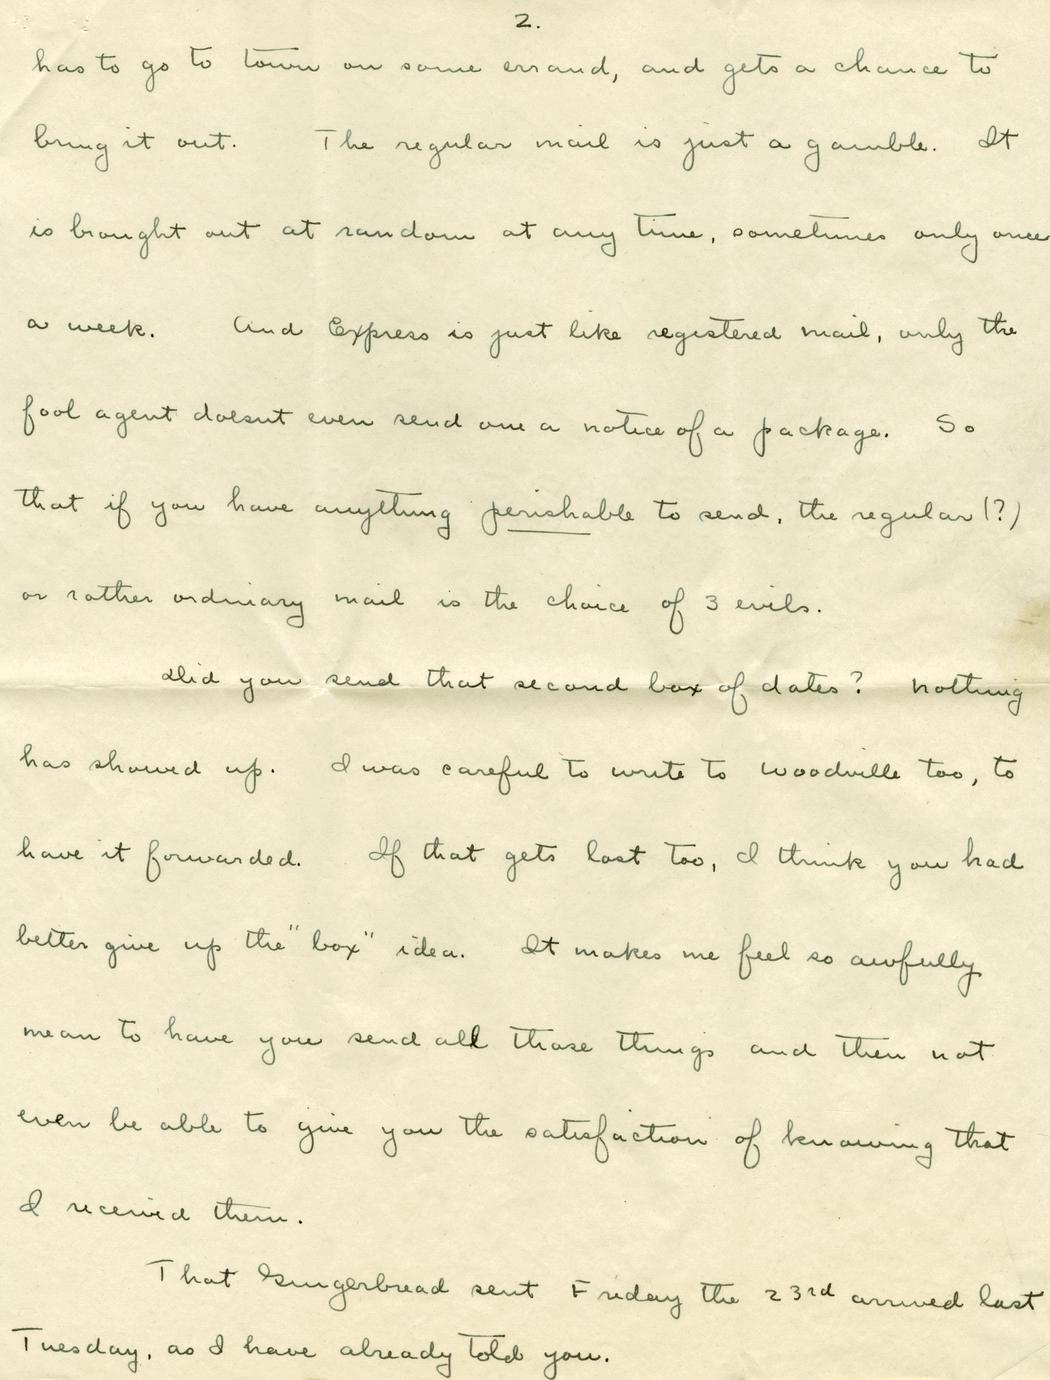 2.
has to go to town on some errand, and gets a chance to
bring it out. The regular mail is just a gamble. It
is brought out at random at any time, sometimes only once
a week. And Express is just like registered mail, only the
fool agent doesnt even send one a notice of a package. So
that if you have anything perishable to send, the regular (?)
or rather ordinary mail is the choice of 3 evils.
Did you send that second box of dates? Nothing
has showed up. I was careful to write to Woodville too, to
have it forwarded. If that gets lost too, I think you had
better give up the "box" idea. It makes me feel so awfully
mean to have you send all those things and then not
even be able to give you the satisfaction of knowing that
I received them.
That Gingerbread sent Friday the 23rd arrived last
Tuesday, as I have already told you.